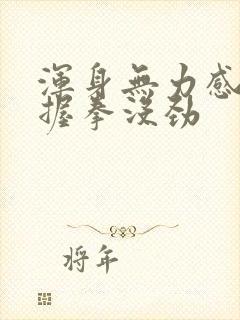 渾身無力感
握拳沒勁
將年